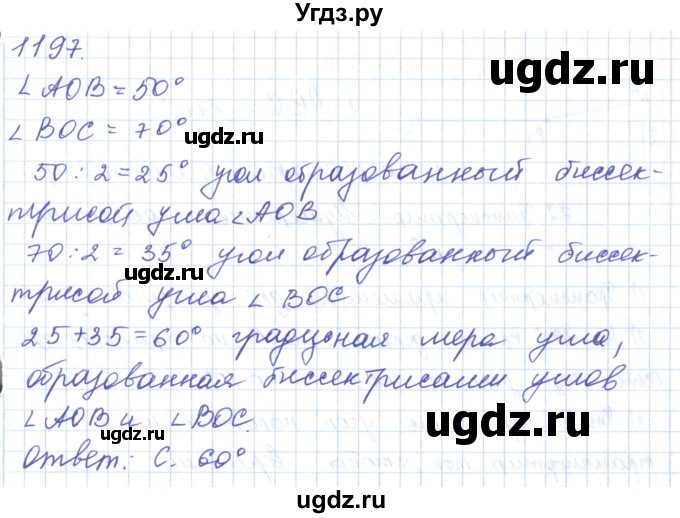 Угдз.ру
1197.
∠AOB = 50°
∠BOC = 70°
ugdz.ru
ugdz.ru
50 : 2 = 25° угол образованный биссек-
трисой угла ∠AOB
ugdz.ru
70 : 2 = 35° угол образованный биссек-
трисой угла ∠BOC
ugdz.ru
ugdz.ru
25 + 35 = 60° градусная мера угла,
образованная биссектрисами углов
∠AOB и ∠BOC.
ugdz.ru
ugdz.ru
Ответ: C. 60°
ugdz.ru